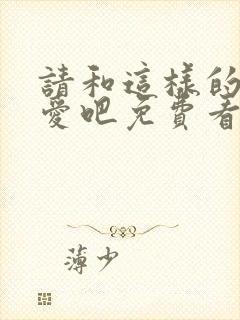 請和這樣的
愛吧免費看
薄少